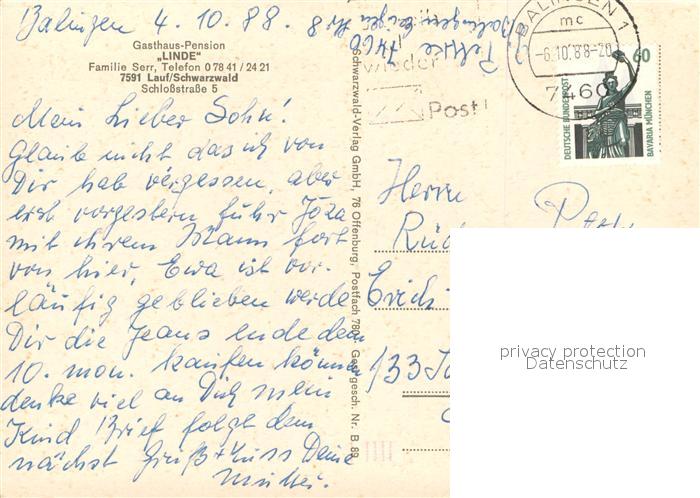 Balingen 4. 10. 88. 8 Uhr
Gasthaus-Pension
„LINDE"
Familie Serr, Telefon 0 78 41 / 24 21
7591 Lauf/Schwarzwald
Schloßstraße 5
Mein Lieber Sohn!
Glaube nicht das ich von
Dir hab vergessen, aber
erst vorgestern fuhr Joza
mit ihrem Mann fort
von hier, Ewa ist vor-
läufig geblieben werde
Dir die Jeans ende dem
10. mon. kaufen können
denke viel an Dich mein
Kind Brief folgt dem
nächst Gruß + Kuss Deine
Mutter.
7460 Balingen
Schwarzwald-Verlag GmbH, 76 Offenburg, Postfach 780 Ges. gesch. Nr. B 89
wieder
Post!
BALINGEN 1
mc
-6.10.88-20
7460
60
DEUTSCHE BUNDESPOST
BAVARIA MÜNCHEN
Herrn
Erich
privacy protection
Datenschutz